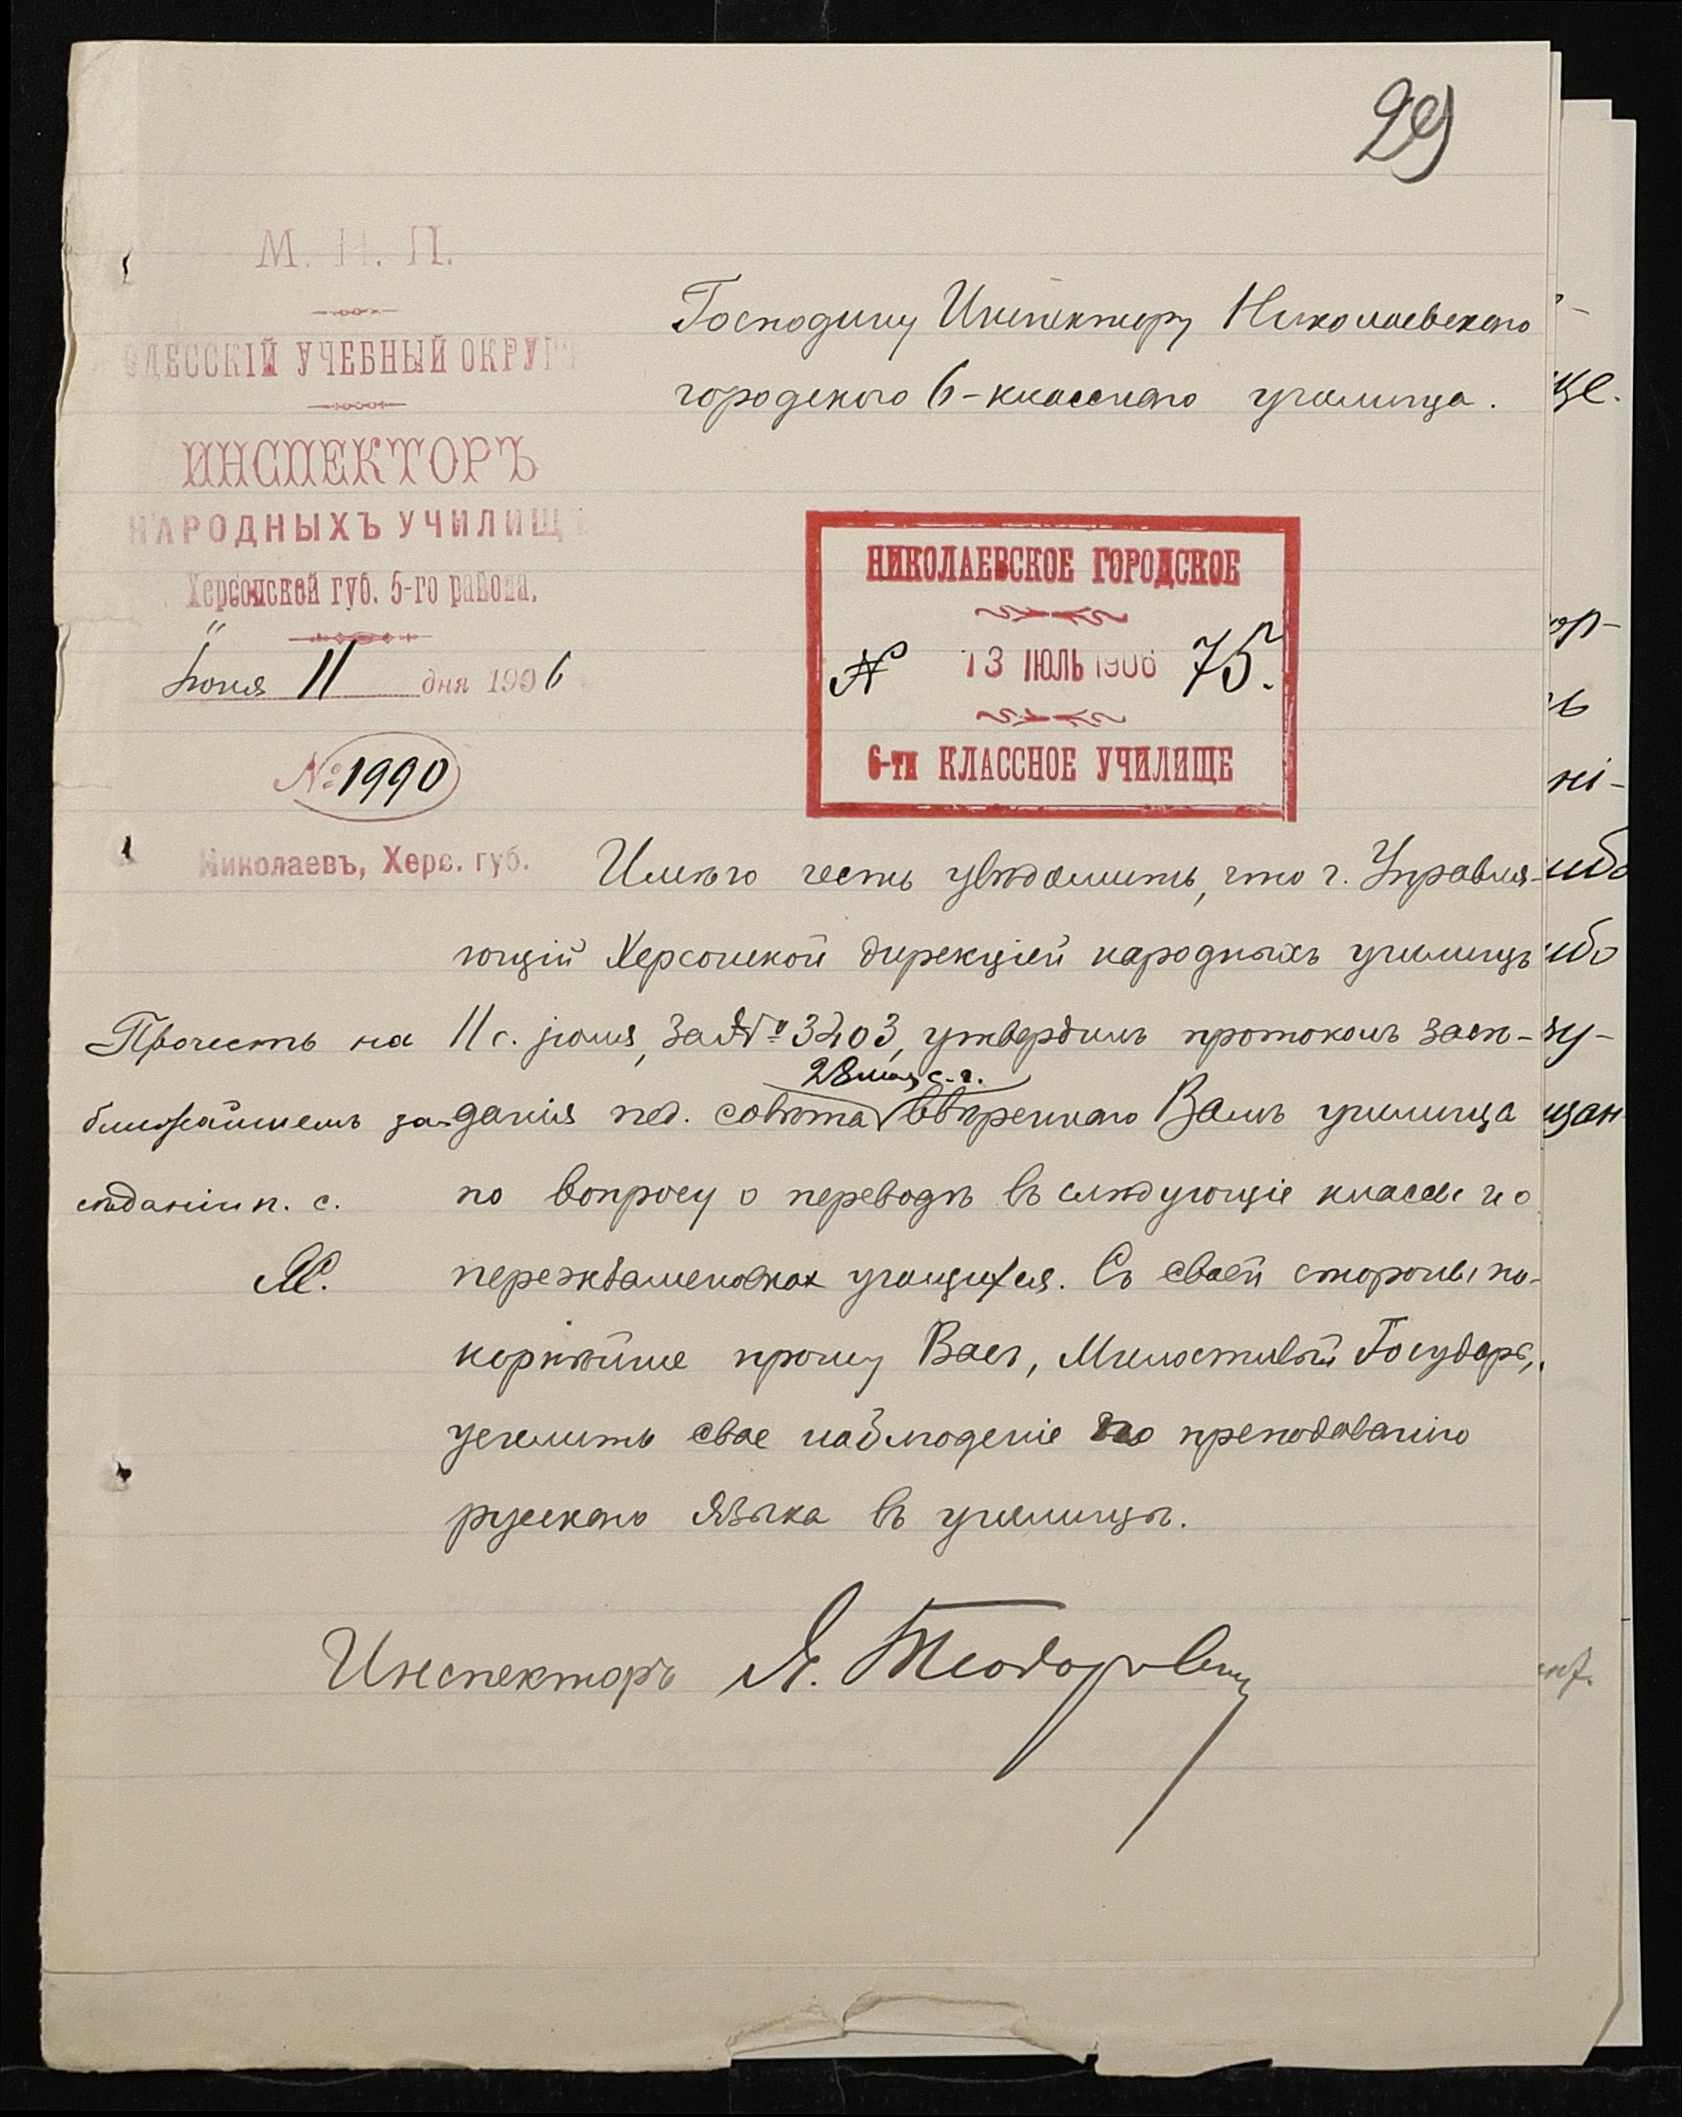 29
М. Н. П.
ОДЕССКІЙ УЧЕБНЫЙ ОКРУГЪ
ИНСПЕКТОРЪ
НАРОДНЫХЪ УЧИЛИЩЪ
Херсонской губ. 5-го района.
Іюля 11 дня 1906
№ 1990
Николаевъ, Херс. губ.
Господину Инспектору Николаевскаго
городского 6-класснаго училища.
НИКОЛАЕВСКОЕ ГОРОДСКОЕ
№ 13 ІЮЛЬ 1906 75.
6-ти КЛАССНОЕ УЧИЛИЩЕ
Имѣю честь увѣдомить, что г. Управля-
ющій Херсонской дирекціей народныхъ училищъ
11 с. іюля, за № 3203, утвердилъ протоколъ засѣ-
28 мая с. г.
данія пед. совѣта ввѣреннаго Вамъ училища
по вопросу о переводѣ въ слѣдующіе классы и о
переэкзаменовках учащихся. Съ своей стороны по-
корнѣйше прошу Васъ, Милостивый Государь,
усилить свое наблюденіе по преподаванію
русскаго языка въ училищѣ.
Прочесть на
ближайшемъ за-
сѣданіи п. с.
Инспекторъ Я. Теодоровичъ